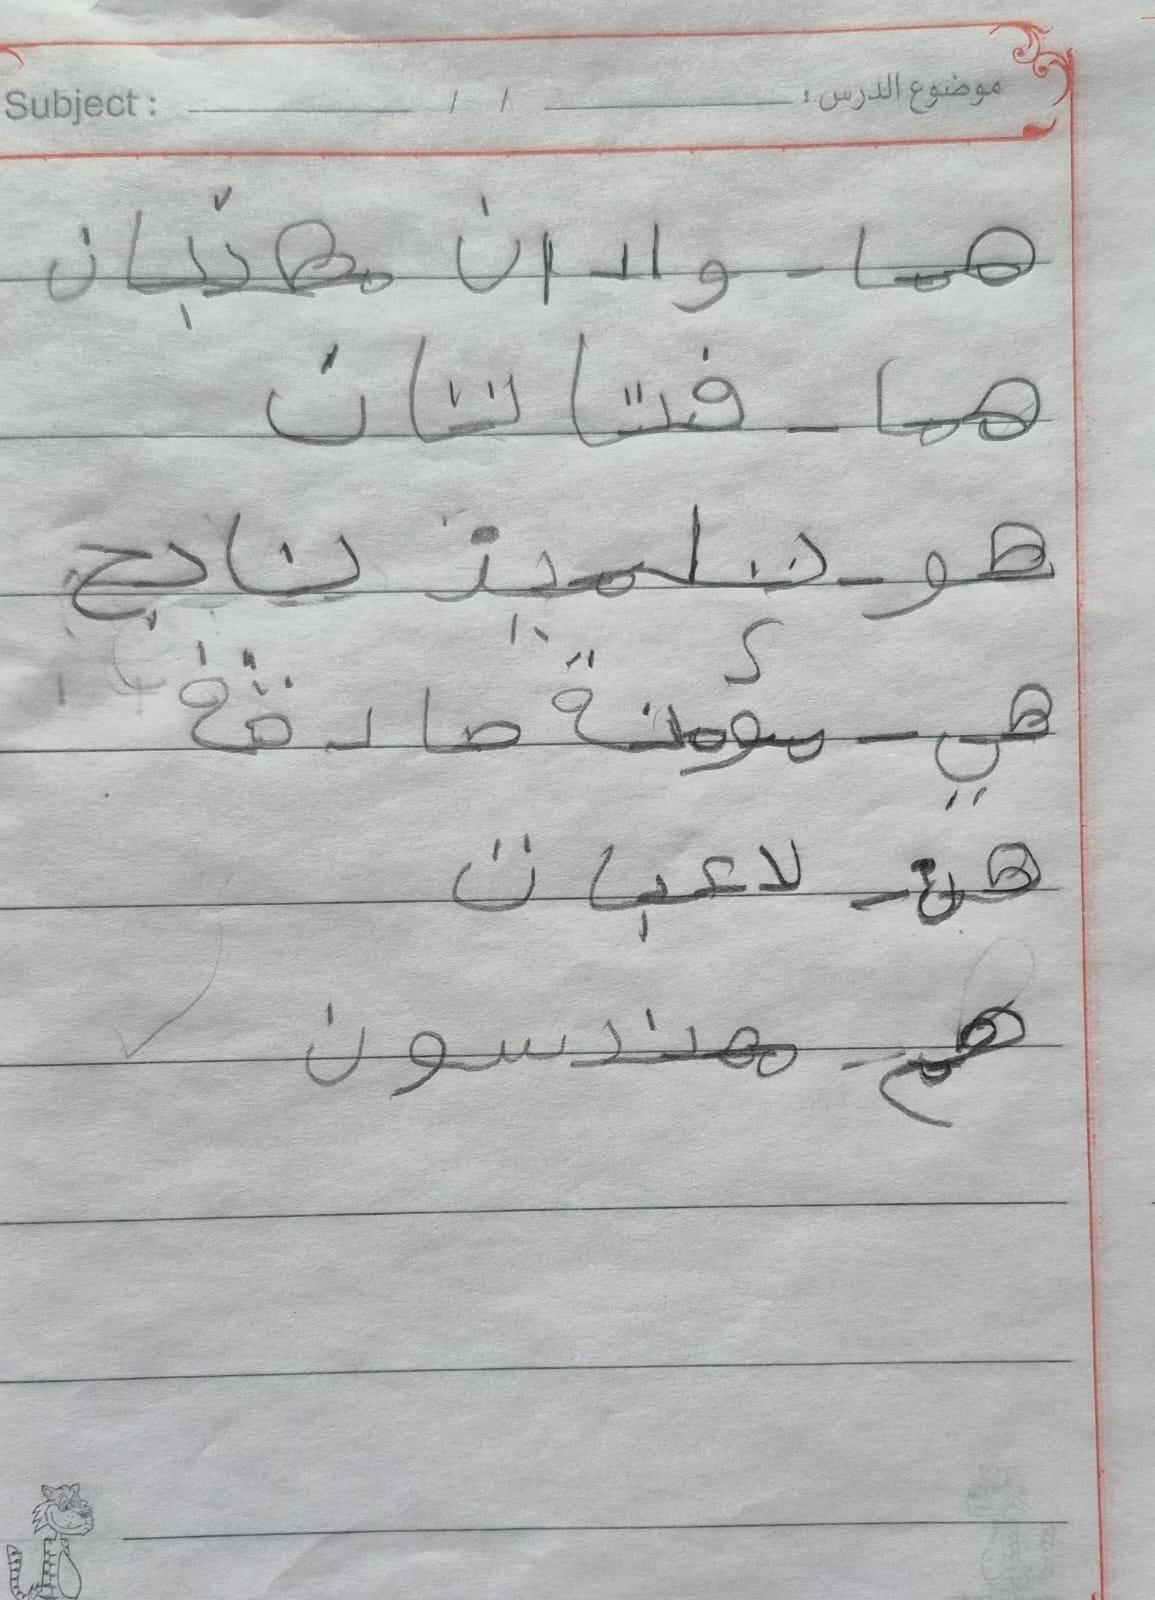 موضوع الدرس : / / Subject :
هما - ولدان مهذبان
هما - فتاتان
هو - تلميذ ناجح
هي - مؤمنة صادقة
هن - لاعبات
هم - مهندسون